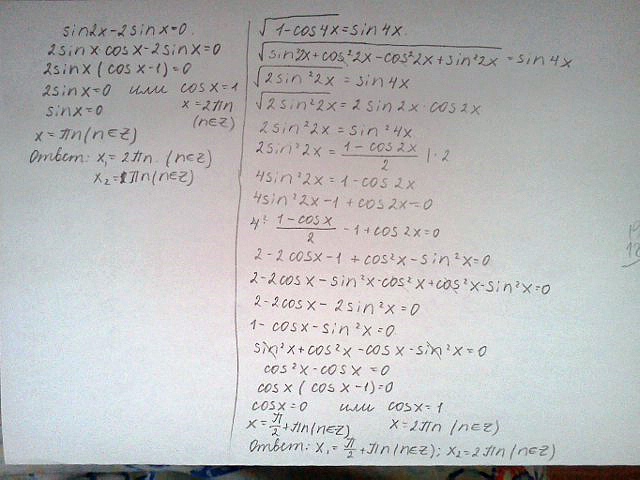 sin2x-2sinx=0.
2sinx·cosx-2sinx=0
2sinx(cosx-1)=0
2sinx=0 или cosx=1
sinx=0 x=2πn
(n∈Z)
x=πn(n∈Z)
Ответ: x₁=2πn. (n∈Z)
x₂=πn(n∈Z)
√1-cos4x=sin4x.
√sin²2x+cos²2x-cos²2x+sin²2x=sin4x
√2sin²2x=sin4x
√2sin²2x=2sin2x·cos2x
2sin²2x=sin²4x.
2sin²2x=(1-cos2x)/2 |·2
4sin²2x=1-cos2x
4sin²2x-1+cos2x=0
4·(1-cosx)/2-1+cos2x=0
2-2cosx-1+cos²x-sin²x=0
2-2cosx-sin²x-cos²x+cos²x-sin²x=0
2-2cosx-2sin²x=0
1-cosx-sin²x=0
sin²x+cos²x-cosx-sin²x=0
cos²x-cosx=0
cosx(cosx-1)=0
cosx=0 или cosx=1
x=π/2+πn(n∈Z) x=2πn(n∈Z)
Ответ: x₁=π/2+πn(n∈Z); x₂=2πn(n∈Z)